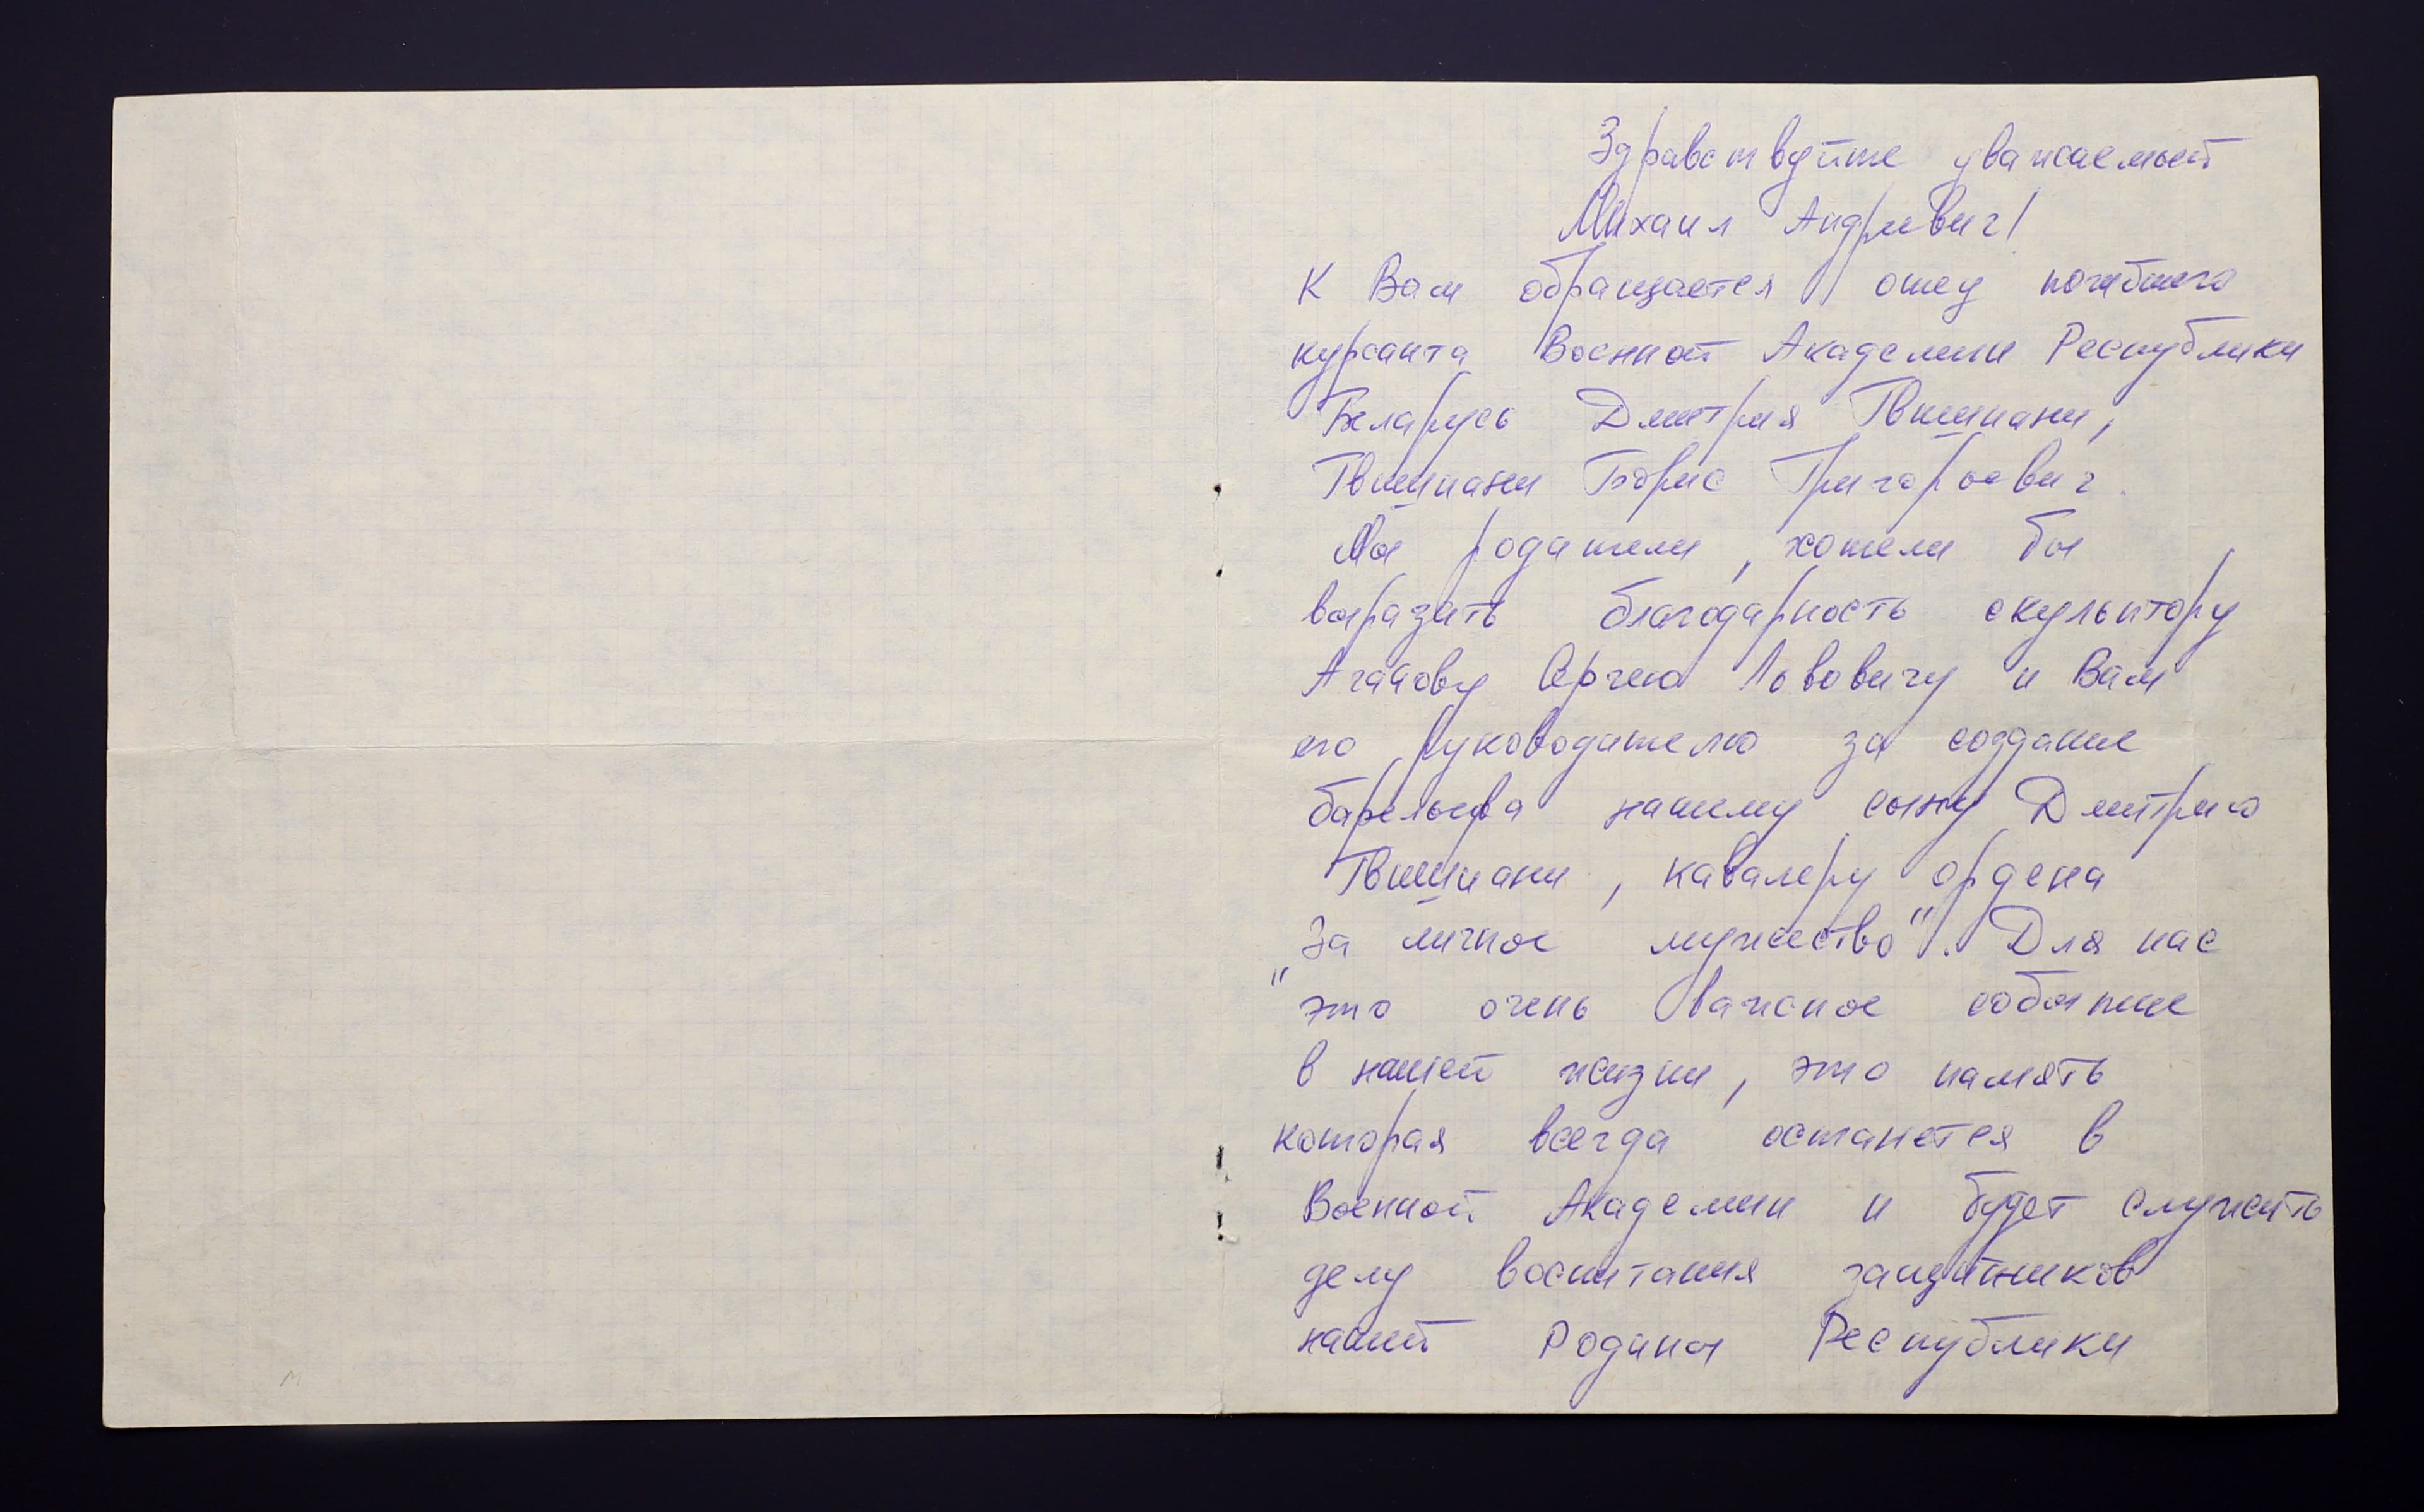 Здравствуйте уважаемый
Михаил Андреевич!
К Вам обращается отец погибшего
курсанта Военной Академии Республики
Беларусь Дмитрия Гвишиани,
Гвишиани Борис Григорьевич.
Мы родители, хотели бы
выразить благодарность скульптору
Агапову Сергею Львовичу и Вам
его руководителю за создание
барельефа нашему сыну Дмитрию
Гвишиани, кавалеру ордена
"За личное мужество". Для нас
это очень важное событие
в нашей жизни, это память
которая всегда останется в
Военной Академии и будет служить
делу воспитания защитников
нашей Родины Республики